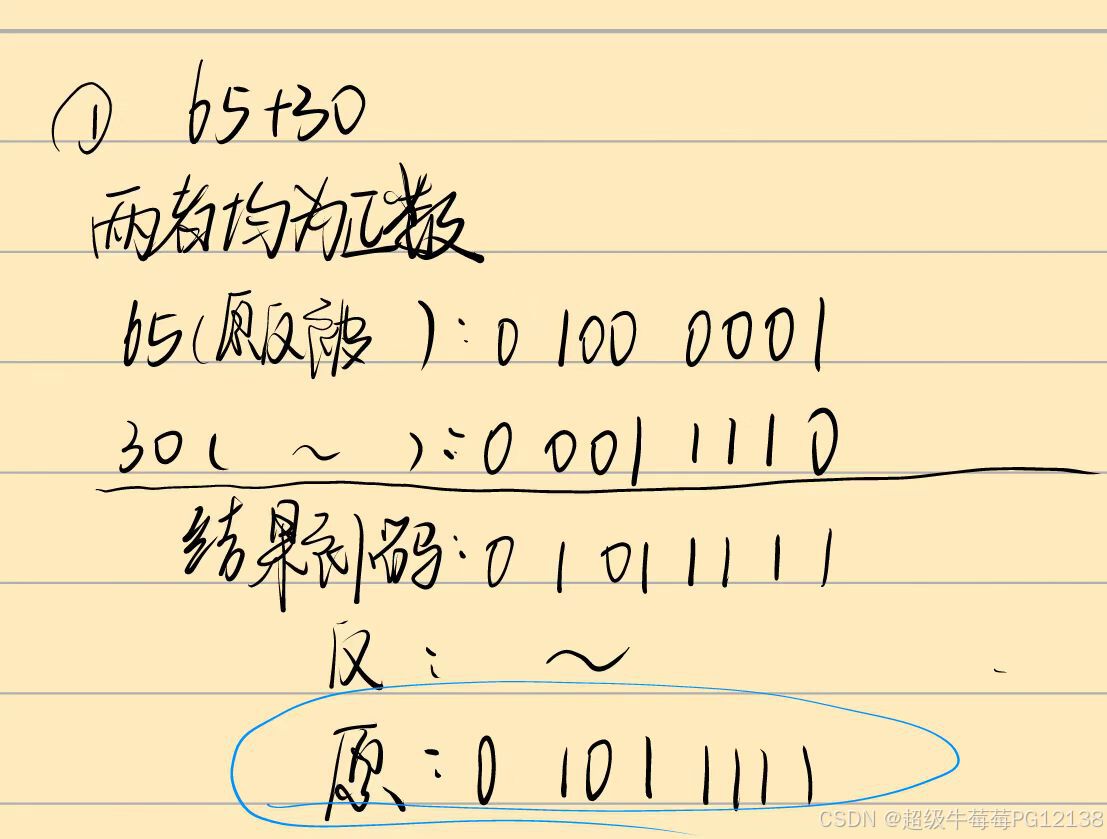 ① 65+30
两者均为正数
65(原反补):0 100 0001
30( ~ ):0 001 1110
结果补码:0 1 01 1 1 1 1
反: ~
原:0 101 1111
CSDN @超级牛莓莓PG12138